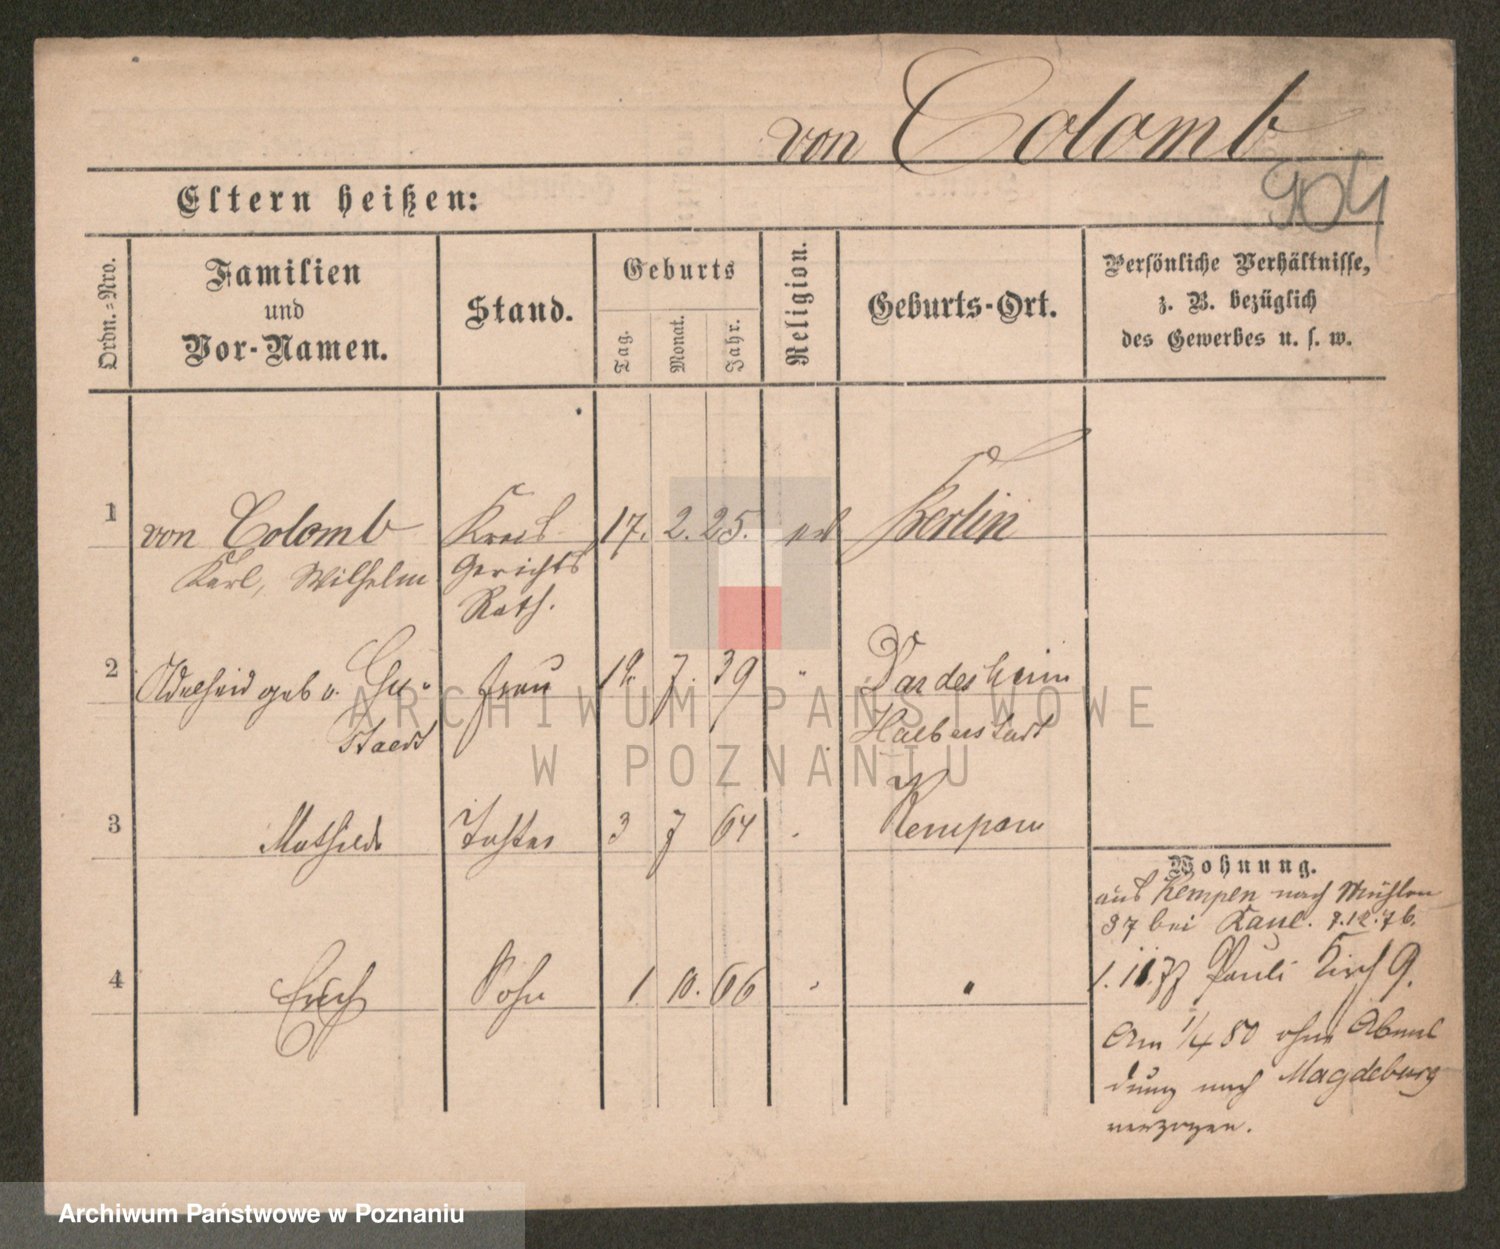 von Colomb
904
Eltern heißen:
Ordn.=Nro.
Familien
und
Vor-Namen.
Stand.
Geburts
Tag.
Monat.
Jahr.
Religion.
Geburts-Ort.
Persönliche Verhältnisse,
z. B. bezüglich
des Gewerbes u. s. w.
1 von Colomb Kreis 17. 2. 25. Berlin
Karl, Wilhelm Gerichts
Rath.
2 Adelheid geb v. Gu- Frau 19. 7. 39 " Dardesheim
staedt Halberstadt
3 Mathilde Tochter 3 7 64 Kempen
4 Erich Sohn 1. 10. 66 " "
Wohnung.
aus Kempen nach Mühlen
37 bei 8.12.76.
77 Pauli Kirch 9.
Am 1/4 80 ohne Abmel
dung nach Magdeburg
verzogen.
ARCHIWUM PAŃSTWOWE
W POZNANIU
Archiwum Państwowe w Poznaniu